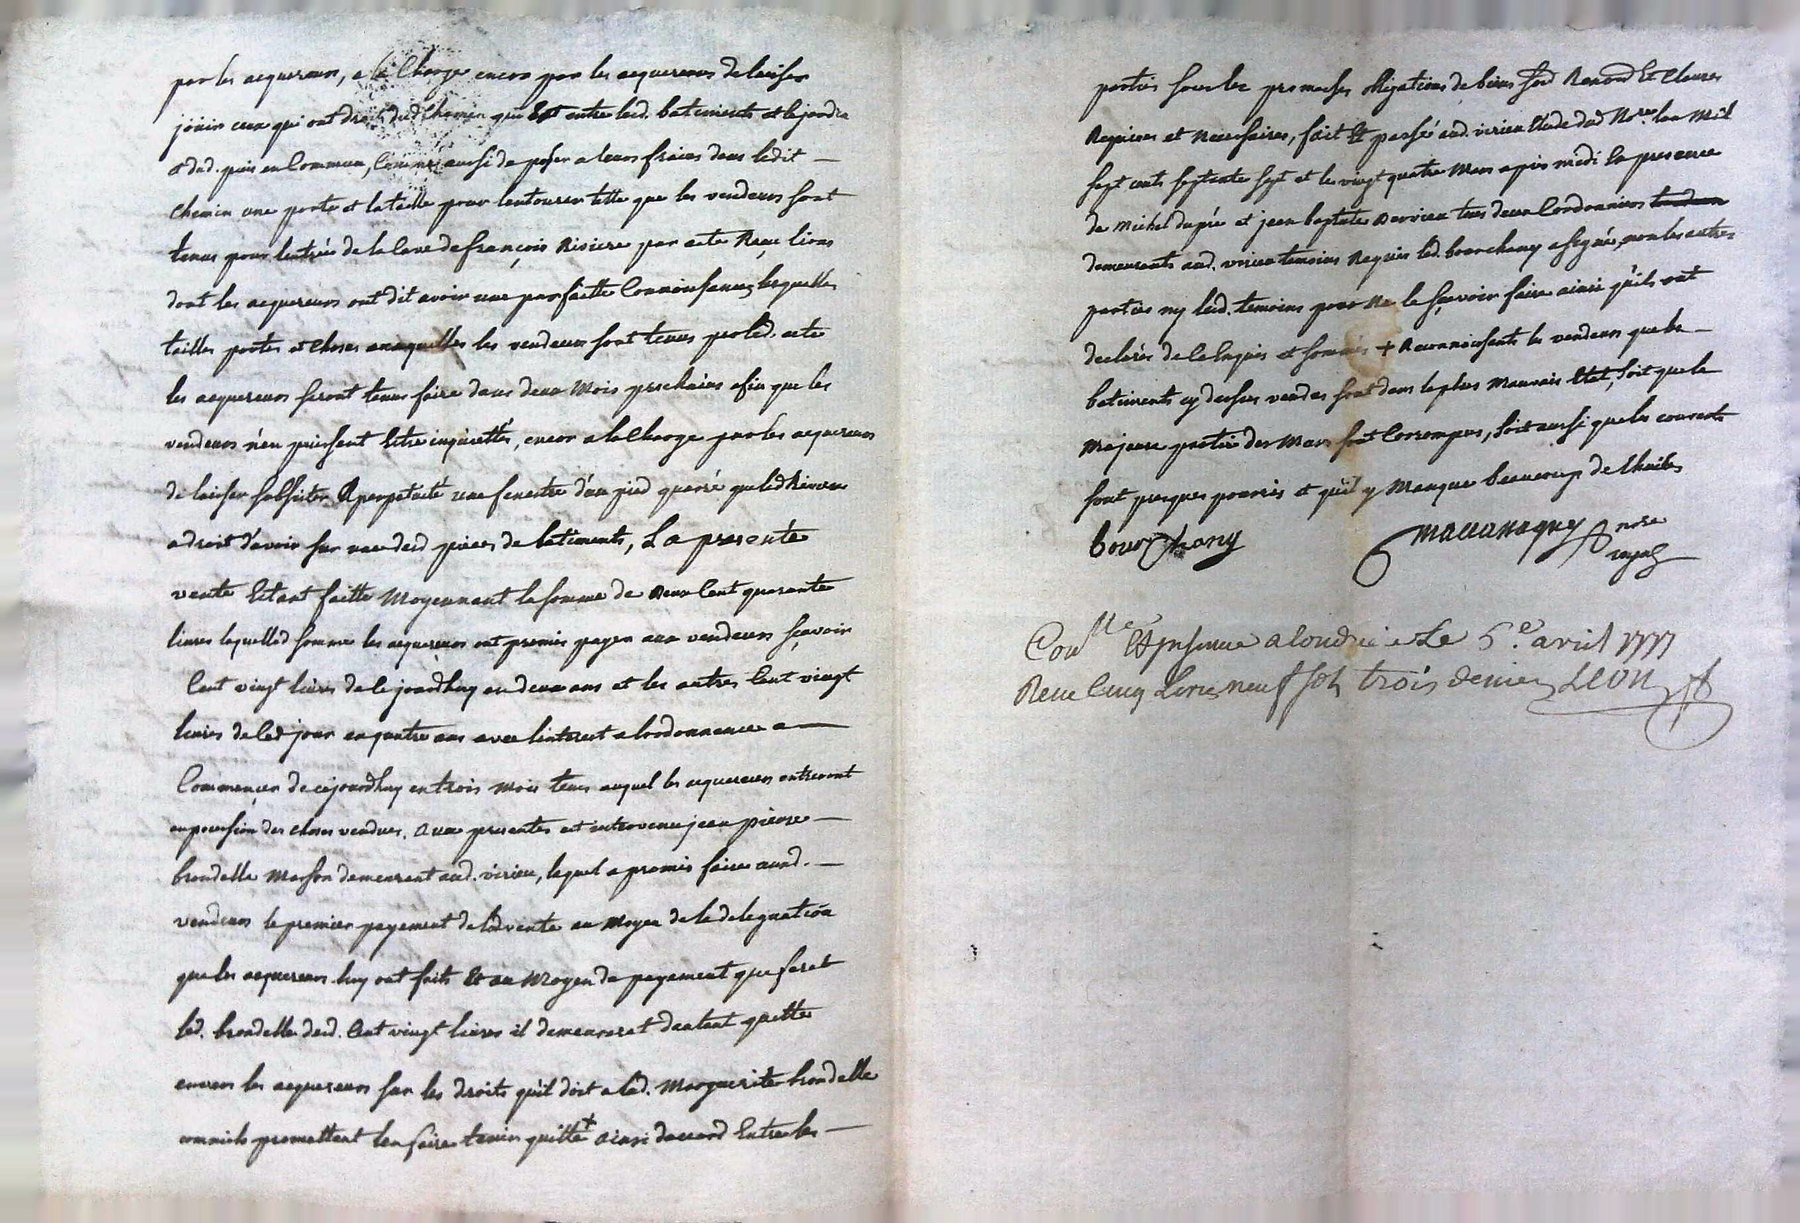 par les acquereurs, a la Charge encor par les acquereurs de laisser
joüir ceux qui ont droit dud. Chemin qui Est entre lesd. batiments et le jardin
et dud. puis en Commun, Comme aussi de poser a leurs fraix dans ledit
chemin une porte et la taille pour l'entourer telle que les vendeurs sont
tenus pour l'entrée de la Cave de françois Riviere par acte Reçu
dont les acquereurs ont dit avoir une parfaitte Connoissance, lesquelles
tailles portes et choses auxquelles les vendeurs sont tenus par led. acte
les acquereurs seront tenus faire dans deux Mois prochains afin que les
vendeurs n'en puissent Estre inquiettés, encor a la Charge par les acquereurs
de laisser subsister A perpetuité une fenestre d'un pied quarré que led. Riviere
a droit d'avoir sur une desd. pieces de batiments, La presente
vente Estant faitte Moyennant la somme de deux Cent quarante
livres laquelle d. somme les acquereurs ont promis payer aux vendeurs sçavoir
Cent vingt livres de ce jourdhuy en deux ans et les autres Cent vingt
livres de ced. jour en quatre ans avec l'interest a l'ordonnance a
Commencer de cejourdhuy en trois mois tems auquel les acquereurs entreront
en possession des choses vendues. Aux presentes est intervenu jean pierre
brondelle Masson demeurant aud. virieu, lequel a promis faire auxd.
vendeurs le premier payement de lad. vente au Moyen de la delegation
que les acquereurs luy ont fait Et au Moyen du payement que ferat
led. brondelle desd. Cent vingt livres il demeurerat d'autant quitte
envers les acquereurs sur les droits qu'il doit a lad. Marguerite brondelle
promettent l'en faire tenir quitte + Ainsi d'accord Entre les
parties sous les promesses obligations de biens Renond Et Clauses
Requises et necessaires, fait Et passé aud. virieu Etude dud No.re l'an Mil
sept cents septante sept et le vingt quatre Mars apres midi En presence
de Michel dupré et jean baptiste tous deux Cordonniers
demeurants aud. virieu temoins Requis led. bourchany a signé, non les autres
parties ny lesd. temoins pour Ne le sçavoir faire ainsi qu'ils ont
declarés de ce Enquis et sommés + Reconnoissants les vendeurs que les
batiments cy dessus vendus sont dans le plus Mauvais Etat, soit que la
Majeure partie des Murs sont Corrompus, soit aussi que les couverts
sont presques pourris et qu'il y Manque beaucoup de thuiles
bourchany no.re
royal
Con.lle Et Insinué a le 5.e avril 1777
Receu Cinq Livres neuf sols trois deniers LEON